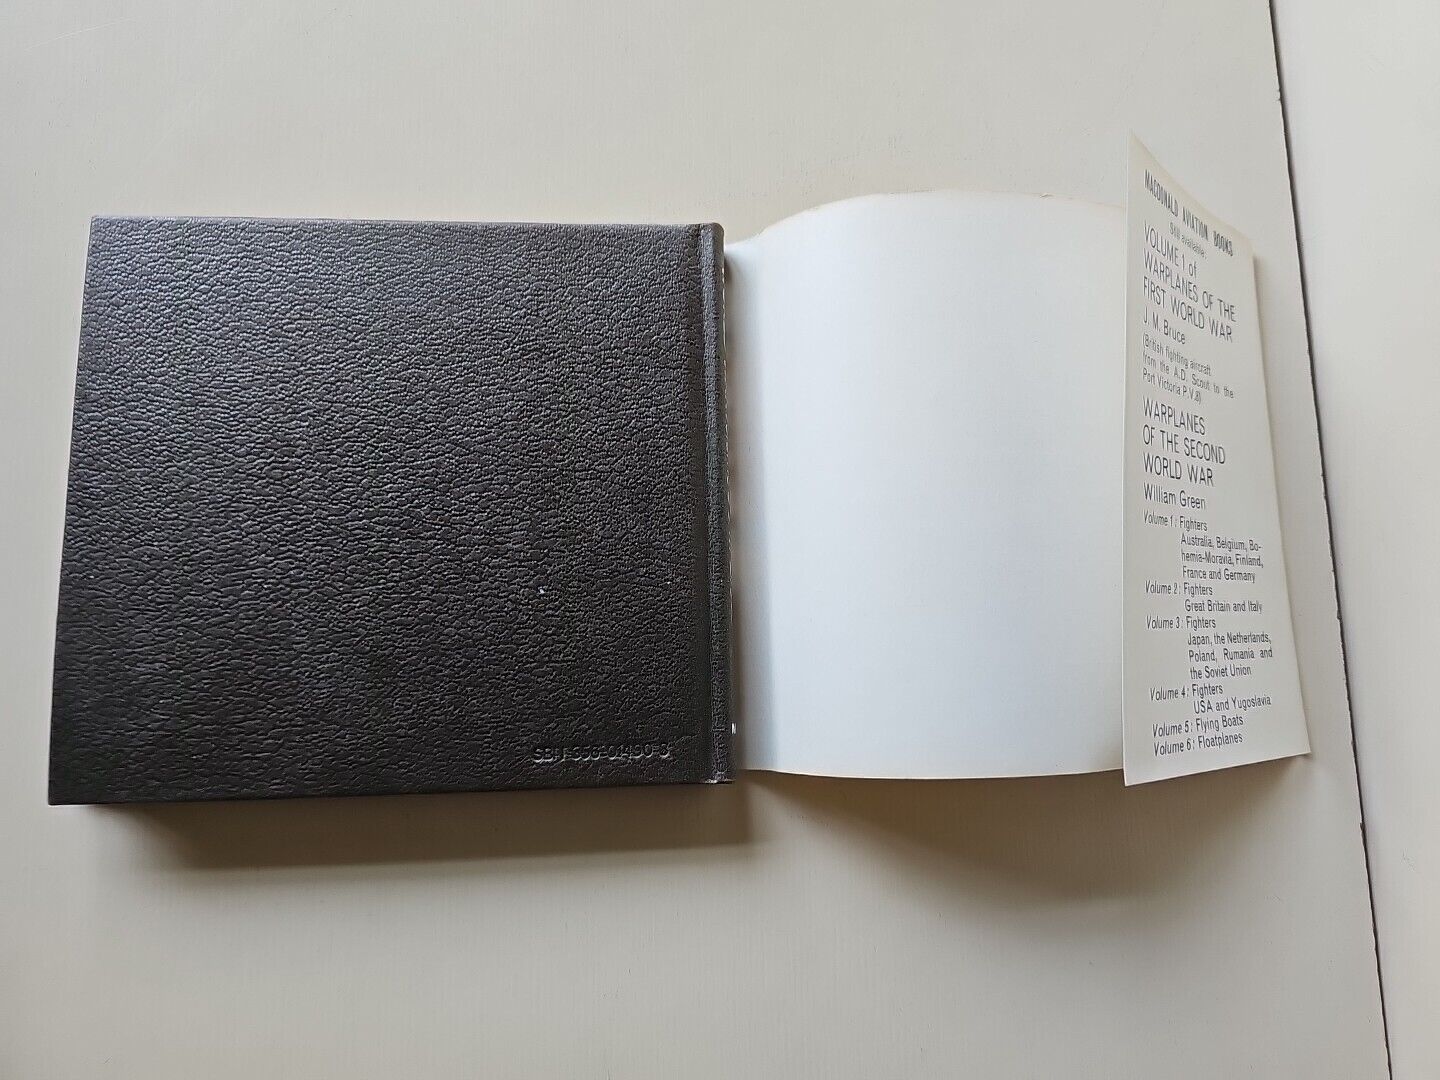 MACDONALD AVIATION BOOKS
Still available:
VOLUME 1 of
WARPLANES OF THE
FIRST WORLD WAR
J. M. Bruce
(British fighting aircraft
from the A.D. Scout to the
Port Victoria P.V.8)
WARPLANES
OF THE SECOND
WORLD WAR
William Green
Volume 1: Fighters
Australia, Belgium, Bo-
hemia-Moravia, Finland,
France and Germany
Volume 2: Fighters
Great Britain and Italy
Volume 3: Fighters
Japan, the Netherlands,
Poland, Rumania and
the Soviet Union
Volume 4: Fighters
USA and Yugoslavia
Volume 5: Flying Boats
Volume 6: Floatplanes
SBN 356-01490-3